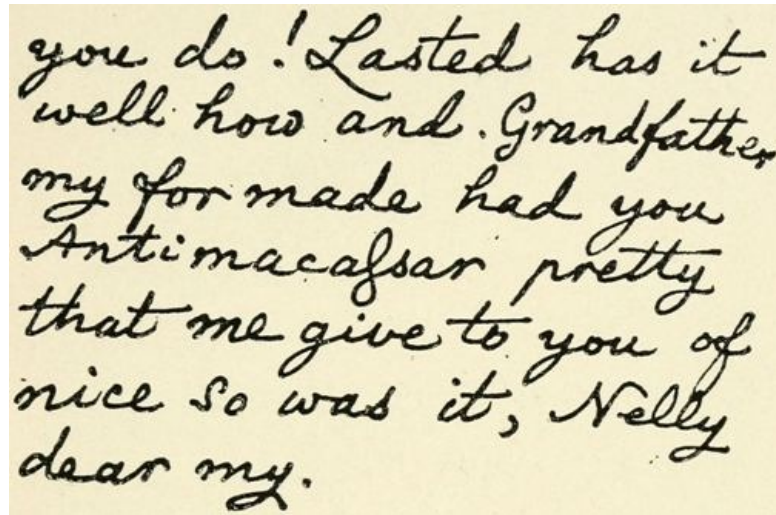 you do! Lasted has it
well how and. Grandfather
my for made had you
Antimacassar pretty
that me give to you of
nice so was it, Nelly
dear my.